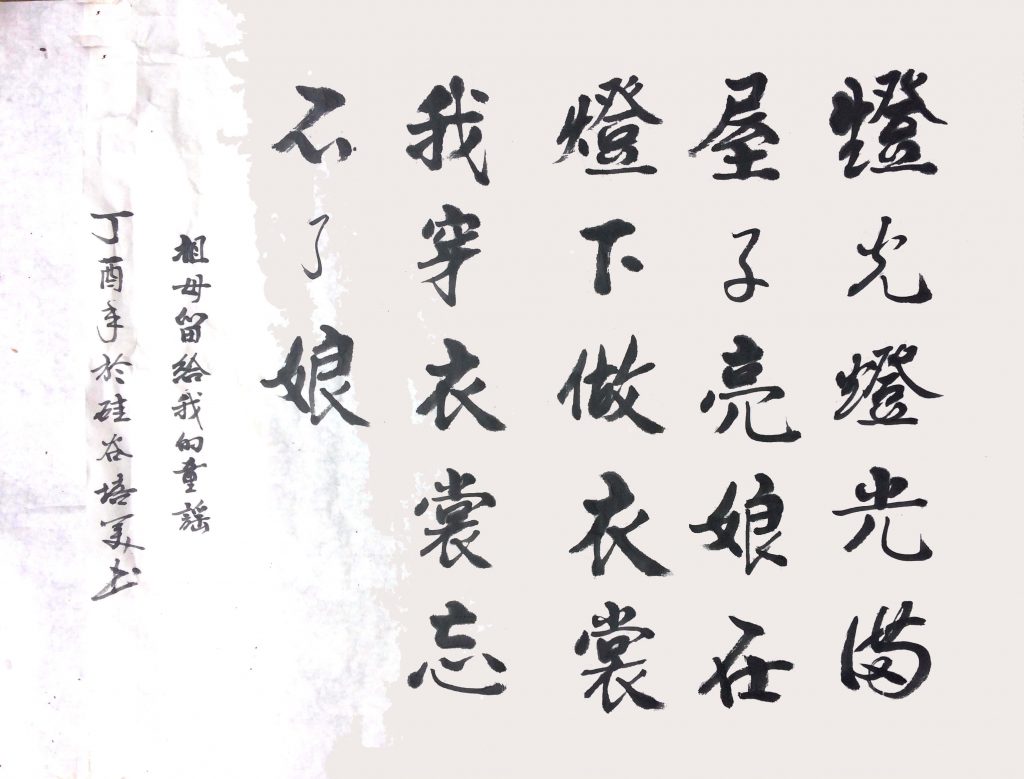 燈光燈光滿
屋子亮娘在
燈下做衣裳
我穿衣裳忘
不了娘
祖母留給我的童謠
丁酉年於硅谷培美书